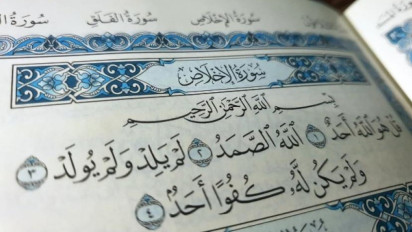 سُورَةُ الإِخْلَاصِ سُورَةُ الفَلَقِ سُورَةُ
سُورَةُ الإِخْلَاصِ
بِسْمِ اللَّهِ الرَّحْمَٰنِ الرَّحِيمِ
قُلْ هُوَ اللَّهُ أَحَدٌ ١ اللَّهُ الصَّمَدُ ٢ لَمْ يَلِدْ وَلَمْ يُولَدْ ٣
وَلَمْ يَكُن لَّهُۥ كُفُوًا أَحَدٌ ٤